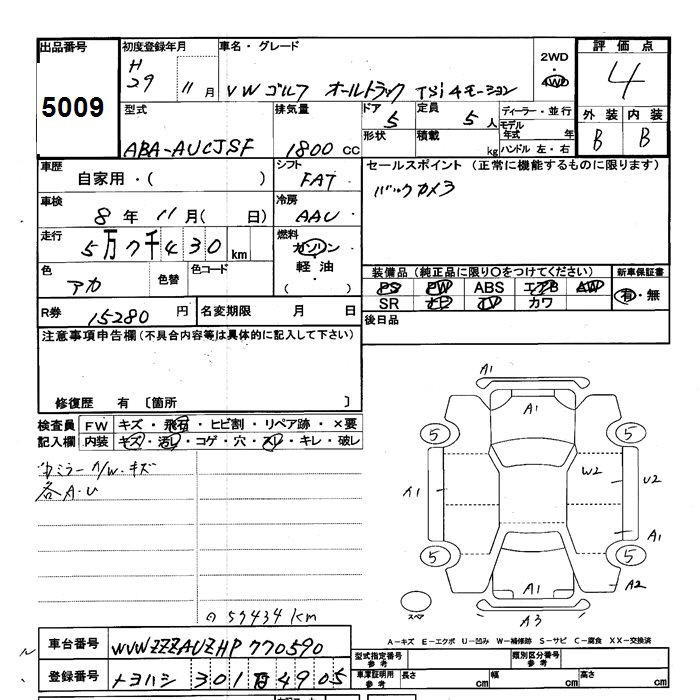 出品番号 初度登録年月 車名・グレード 2WD 評価点
5009 H 29 11月 VW ゴルフ オールトラック TSi 4モーション 4WD 4
型式 排気量 ドア 定員 ディーラー・並行 外装 内装
ABA-AUCJSF 1800 CC 5 5人 モデル年式 年 B B
形状 積載 kg ハンドル 左・右
車歴 シフト セールスポイント (正常に機能するものに限ります)
自家用・( ) FAT バックカメラ
車検 冷房
8年 11月( 日) AAC
走行 燃料
5万7千430km ガソリン
色 色替 色コード 軽油 装備品(純正品に限り○をつけてください) 新車保証書
アカ ( ) PS PW ABS エアB AW 有・無
SR ナビ TV カワ
R券 15280円 名変期限 月 日 後日品
注意事項申告欄(不具合内容等は具体的に記入して下さい)
修復歴 有 〔箇所 〕
検査員 FW キズ・飛石・ヒビ割・リペア跡・×要
記入欄 内装 キズ・汚レ・コゲ・穴・スレ・キレ・破レ
ミラー A/W・キズ
各A・U
A1
A1
5 5
W2 U2
A1
A1
5 5
A1 A2
スペア A3
57434km
A-キズ E-エクボ U-凹み W-補修跡 S-サビ C-腐食 XX-交換済
車台番号 WVWZZZAUZHP770590
型式指定番号 参考 類別区分番号 参考
登録番号 トヨハシ 301 4905
車庫証明用 参考 長さ cm 幅 cm 高さ cm